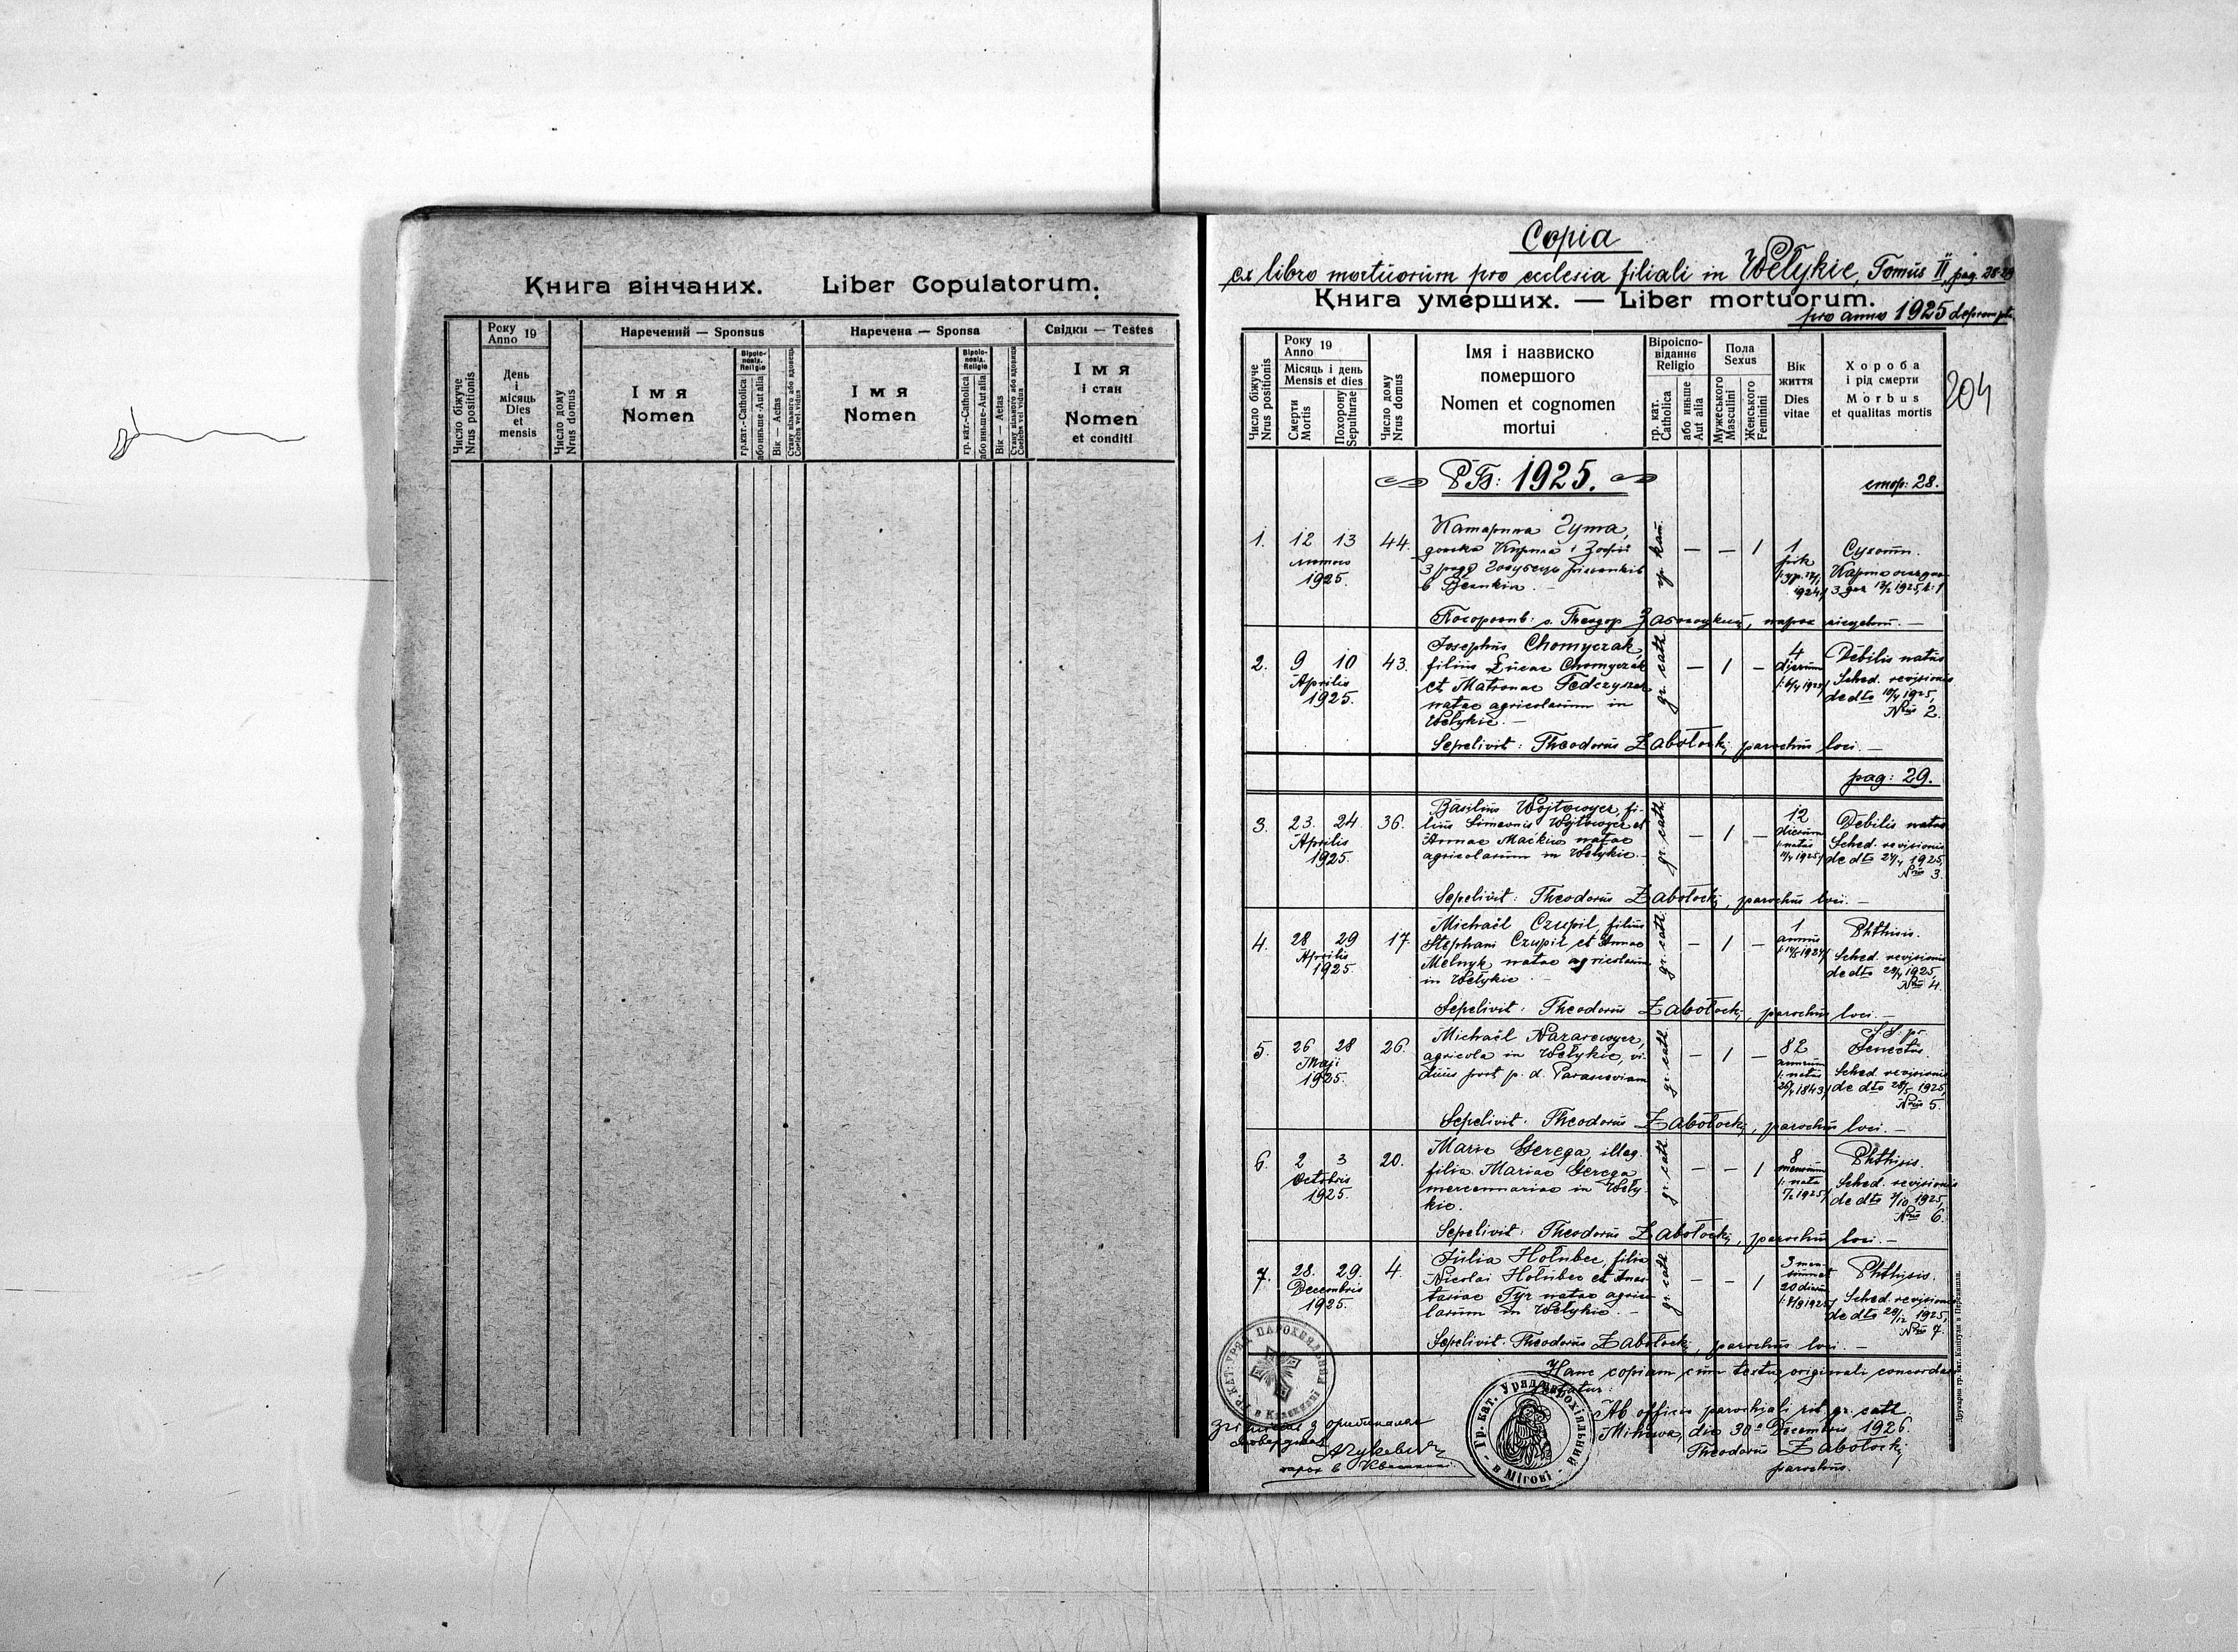 Книга вінчаних. Liber Copulatorum.
Число біжуче
Nrus positionis
Року
Anno 19
День
і
місяць
Dies
et
mensis
Число дому
Nrus domus
Наречений — Sponsus
І м я
Nomen
Віроіспо-
новід.
Religio
гр. кат.-Catholica
або инше-Aut alia
Вік — Aetas
Стану вільного або вдовець
Coelebs vel viduus
Наречена — Sponsa
І м я
Nomen
гр. кат.-Catholica
або инше-Aut alia
Вік — Aetas
Свідки — Testes
І м я
і стан
Nomen
et conditi
Copia
ex libro mortuorum pro ecclesia filiali in Wełykie, Tomus II, pag. 28-29
Книга умерших. — Liber mortuorum.
pro anno 1925 deprompta.
204
Число біжуче
Nrus positionis
Року
Anno 19
Місяць і день
Mensis et dies
Смерти
Mortis
Похорону
Sepulturae
Число дому
Nrus domus
Імя і назвиско
помершого
Nomen et cognomen
mortui
Віроіспо-
віданнє
Religio
гр. кат.
Catholica
або иньше
Aut alia
Пола
Sexus
Мужеського
Masculini
Женського
Feminini
Вік
життя
Dies
vitae
Хороба
і рід смерти
Morbus
et qualitas mortis
РБ: 1925.
стор: 28.
1. 12 13 44. Катарина Гута,
лютого
1925.
гр. кат. — — 1
1
рік
Сухоти.
1925, ч: 1
Похоронив: о. Теодор Заболоцкий, парох місцевий. —
2. 9 10 43. Josephus Chomyczak,
Aprilis
1925.
filius Lucae Chomyczak
et Matronae Fedczyszak
natae agricolarum in
Wełykie. —
gr. cath. — 1 —
4
dierum
Debilis natus
Sched. revisionis
de dto 10/4 1925,
Nrus 2.
Sepelivit: Theodorus Zabołockij, parochus loci. —
pag: 29.
3. 23. 24 36. Basilius Wojtowycz, fi-
Aprilis
1925.
lius Simeonis Wojtowycz et
Annae Maćkiw natae
agricolarum in Wełykie. —
gr. cath. — 1 —
12
dierum
natus
Debilis natus
Sched. revisionis
de dto 24/4 1925,
Nrus 3.
Sepelivit: Theodorus Zabołockij, parochus loci. —
4. 28 29 17. Michaël Czupil, filius
Aprilis
1925.
Stephani Czupil et Annae
Melnyk natae agricolarum
in Wełykie
gr. cath. — 1 —
1
annus
Phthisis.
Sched. revisionis
de dto 28/4 1925,
Nrus 4.
Sepelivit: Theodorus Zabołockij, parochus loci. —
5. 26 28 26. Michaël Nazarewycz,
Maji
1925.
agricola in Wełykie, vi-
duus post p. d. Parasceviam
gr. cath. — 1 —
82
annorum
natus
S. S. pr.
Senectus.
Sched. revisionis
de dto 28/5 1925,
Nrus 5.
Sepelivit: Theodorus Zabołockij, parochus loci. —
6. 2 3 20. Maria Gerega, illeg.
Octobris
1925.
filia Mariae Gerega
mercennariae in Wely-
kie.
gr. cath. — — 1
8
mensium
nata
Phthisis.
Sched. revisionis
1925,
Nrus 6.
Sepelivit: Theodorus Zabołockij, parochus loci. —
7. 28. 29. 4. Julia Hołubec, filia
Decembris
1925.
Nicolai Hołubec et Anas-
tasiae Tyr natae agrico-
larum in Wełykie. —
gr. cath. — — 1
20 dierum
Phthisis.
Sched. revisionis
de dto 28/12 1925,
Nrus 7.
Sepelivit: Theodorus Zabołockij, parochus loci. —
Hanc copiam cum textu originali concordare
testatur:
Ab officio parochiali rit. gr. cath.
Mihowa, die 30a Decembris 1926.
Theodorus Zabołockij
parochus.
Гр. кат. Уряд парохіяльний
в Мігові
ГР. КАТ. УРЯД ПАРОХІЯЛЬНИЙ
з оригіналом
парох в
Друкарня гр. кат. Капітули в Перемишли.